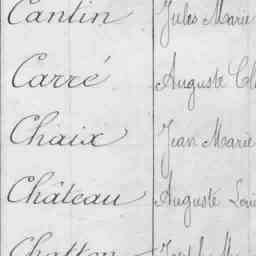 Cantin Jules Marie
Carré Auguste
Chaix Jean Marie
Château Auguste
Chatton Joseph